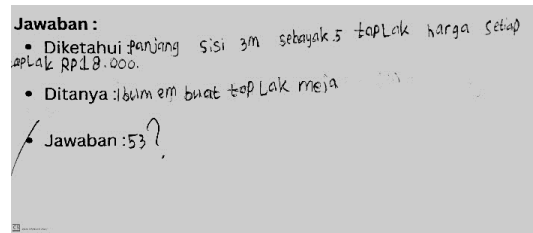 Jawaban :
• Diketahui : panjang sisi 3m sebayak 5 taplak harga setiap
taplak RP18.000.
• Ditanya : ibu mem buat taplak meja
• Jawaban : 53?